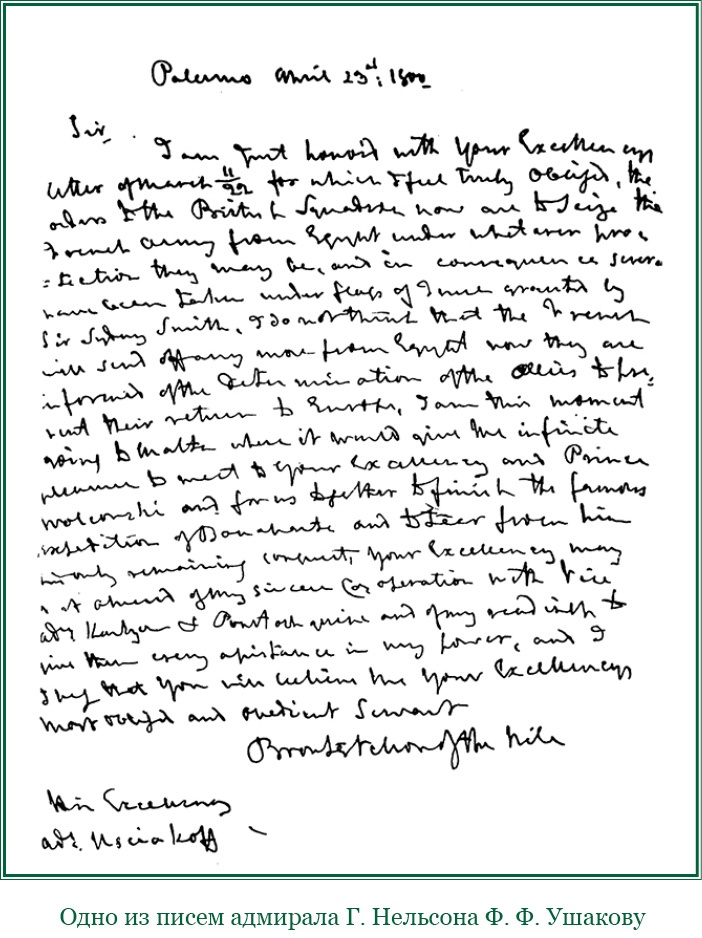 Palermo April 23d: 1800
Sir
I am just honord with Your Excellencys
letter of March 11/22 for which I feel truly obliged, the
orders to the British Squadron now are to seize the
French army from Egypt under whatever pro=
=tection they may be, and in consequence severa
have been taken under flags of Truce granted by
Sir Sydney Smith, I do not think that the French
will send off any more from Egypt now they are
informed of the determination of the Allies to pre=
vent their return to Europe, I am this moment
going to Malta where it would give me infinite
pleasure to meet to Your Excellency and Prince
and for us together to finish the famous
expedition of Bonaparte and to tear from him
his only remaining conquest, Your Excellency may
assured of my sincere Cooperation with Vice
adl and of my readiness to
give them every assistance in my power, and I
beg that You will believe me Your Excellencys
most obliged and obedient Servant
Bronte Nelson of the Nile
His Excellency
adl. Usciakoff
Одно из писем адмирала Г. Нельсона Ф. Ф. Ушакову